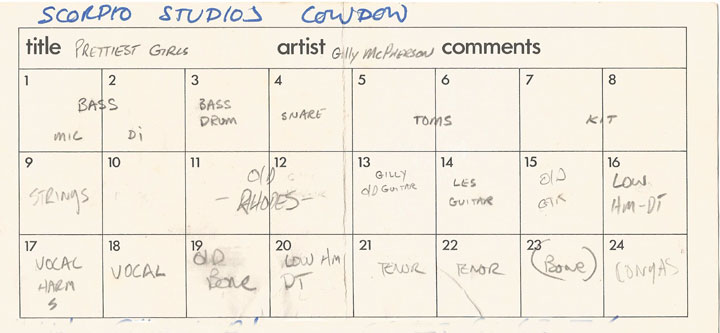 SCORPIO STUDIOS LONDON
title PRETTIEST GIRLS artist Gilly McPHERSON comments
1 2 3 4 5 6 7 8
BASS BASS DRUM SNARE TOMS KIT
MIC Di
9 10 11 12 13 14 15 16
STRINGS O/D - RHODES - GILLY O/D GUITAR LES GUITAR O/D GTR LOW HM-DT
17 18 19 20 21 22 23 24
VOCAL HARMS VOCAL O/D BONE LOW HM DT TENOR TENOR (BONE) CONGAS